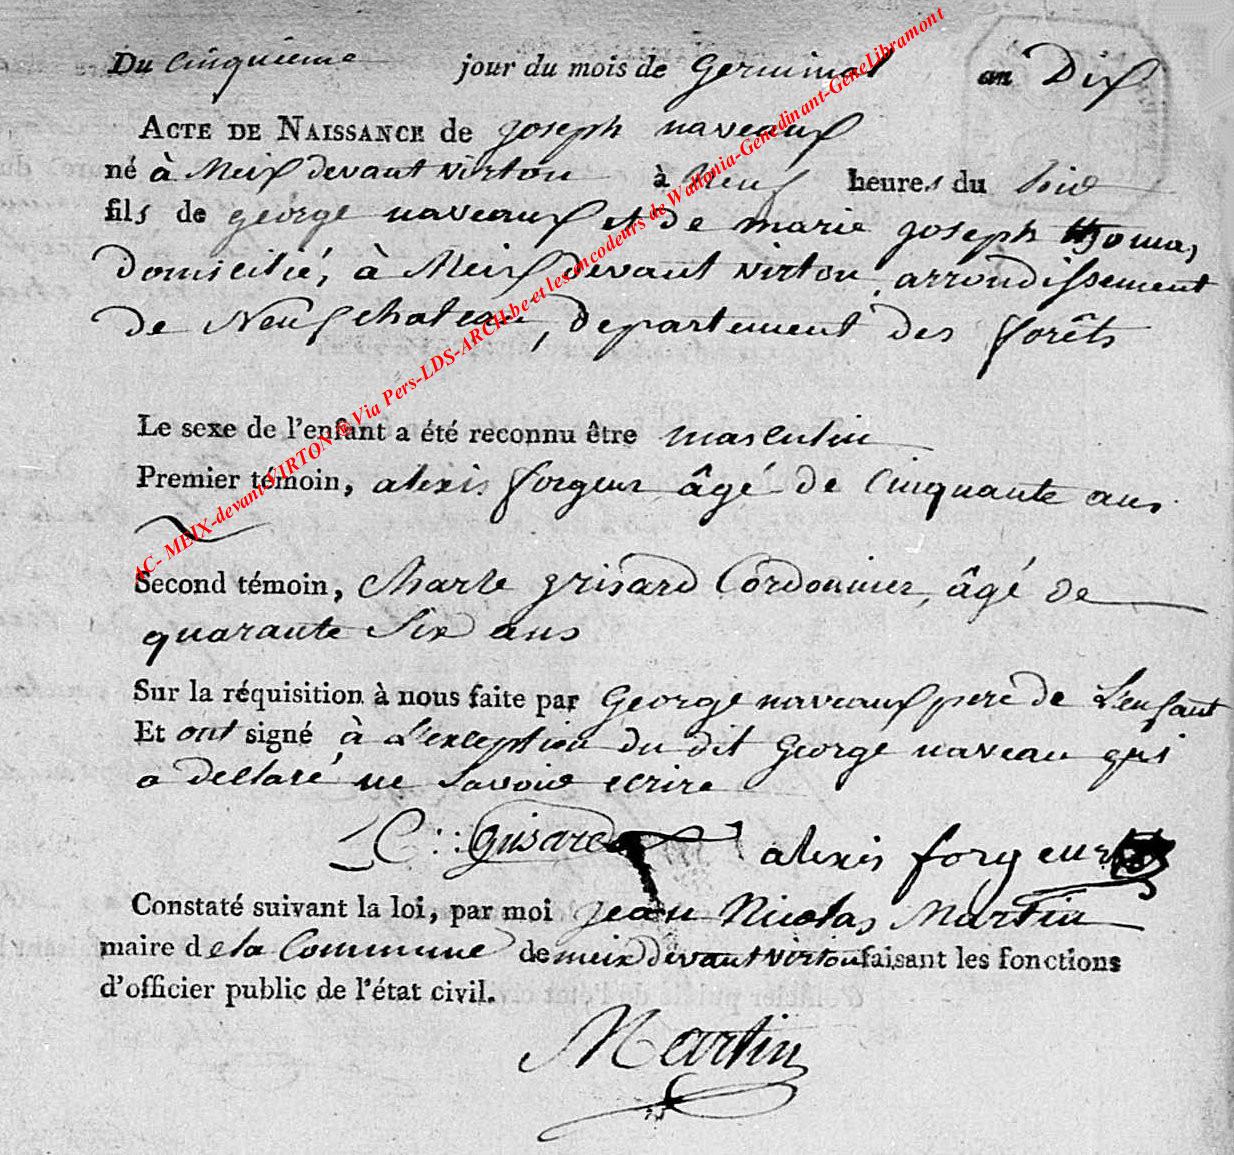 Du Cinquieme jour du mois de Germinal an Dix
ACTE DE NAISSANCE de joseph naveaux
né à Meix devant virton à Neuf heures du Soir
fils de george naveaux et de marie joseph thomas
domicilié, à Meix devant virton, arrondissement
de Neufchateau, departement des forêts
Le sexe de l'enfant a été reconnu être masculin
Premier témoin, alexis forgeur âgé de Cinquante ans
Second témoin, Charle grisard Cordonnier, âgé de
quarante Six ans
Sur la réquisition à nous faite par George naveaux pere de L'enfant
Et ont signé à L'exception du dit George naveau qui
a declaré ne Savoir ecrire
C: : grisard alexis forgeur
Constaté suivant la loi, par moi jean Nicolas Martin
maire de la Commune de meix devant virton faisant les fonctions
d'officier public de l'état civil.
Martin
AC- MEIX-devant-VIRTON ® Via Pers-LDS-ARCH.be et les encodeurs de Wallonia-Genedinant-GeneLibramont